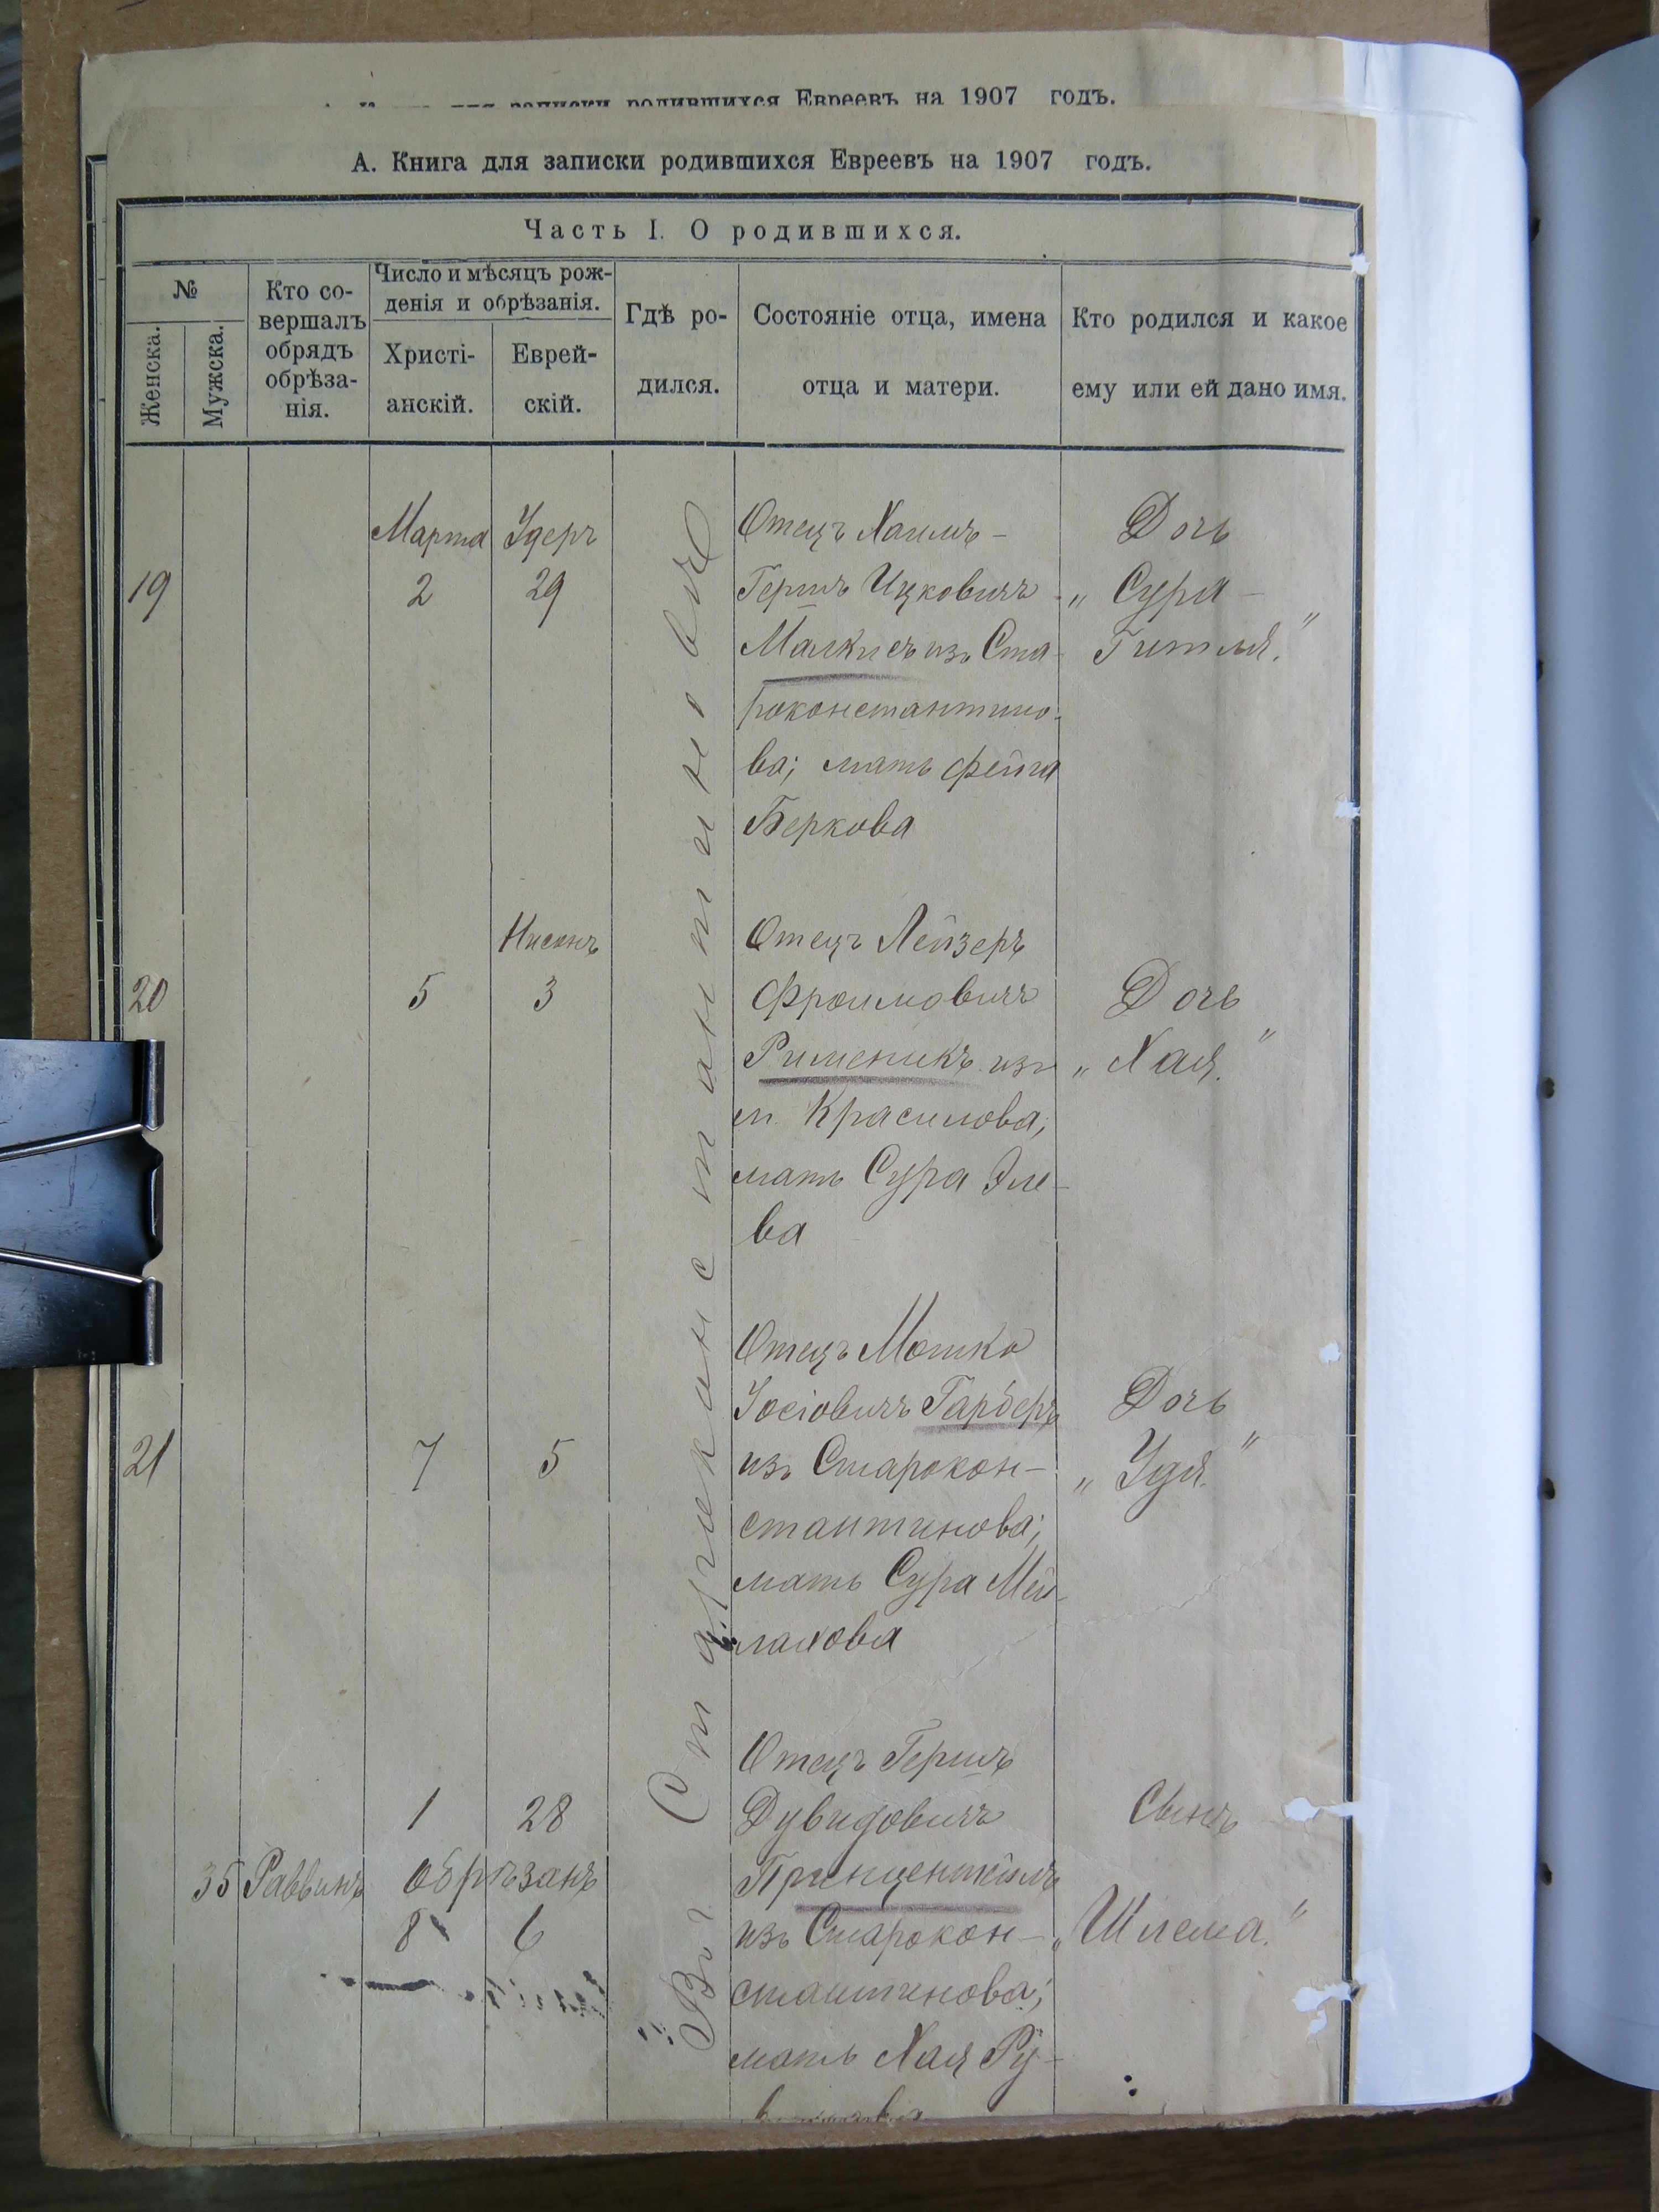 родившихся Евреевъ на 1907 годъ.
А. Книга для записки родившихся Евреевъ на 1907 годъ.
Часть I. О родившихся.
№
Женска.
Мужска.
Кто со-
вершалъ
обрядъ
обрѣза-
нія.
Число и мѣсяцъ рож-
денія и обрѣзанія.
Христі-
анскій.
Еврей-
скій.
Гдѣ ро-
дился.
Состояніе отца, имена
отца и матери.
Кто родился и какое
ему или ей дано имя.
Въ г. Староконстантиновѣ
19
Марта
2
Удеръ
29
Отецъ Хаимъ-
Гершъ Ицковичъ
Малкисъ изъ Ста-
роконстантино-
ва; мать Фейга
Беркова
Дочь
„Сура-
Гитля."
20
5
Нисонъ
3
Отецъ Лейзеръ
Фроимовичъ
Рименикъ изъ
м. Красилова;
мать Сура Эле-
ва
Дочь
„Хая."
21
7
5
Отецъ Мошко
Іосіовичъ Гарберъ
изъ Старокон-
стантинова;
мать Сура Мей-
лахова
Дочь
„Удя."
35
Раввинъ
1
28
обрѣзанъ
8
6
Отецъ Гершъ
Дувидовичъ
Принцентейлъ
изъ Старокон-
стантинова;
мать Хая Ру-
Сынъ
„Шлема."